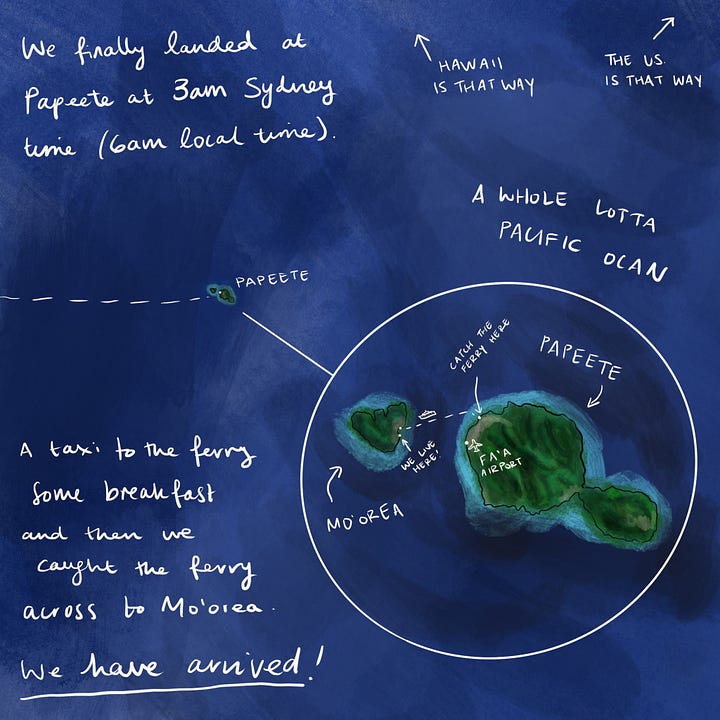 We finally landed at
Papeete at 3am Sydney
time (6am local time).
HAWAII
IS THAT WAY
THE US
IS THAT WAY
A WHOLE LOTTA
PACIFIC OCAN
PAPEETE
CATCH THE
FERRY HERE
PAPEETE
WE LIVE
HERE!
FA'A
AIRPORT
MO'OREA
A taxi to the ferry
Some breakfast
and then we
caught the ferry
across to Mo'orea.
We have arrived!